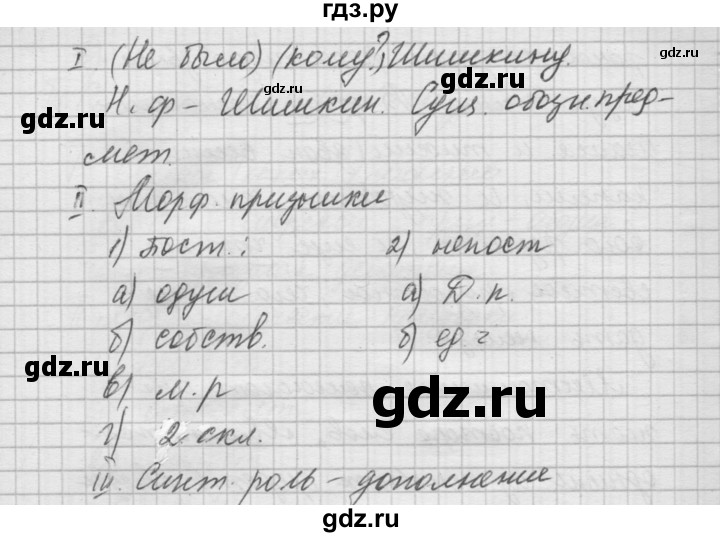 гдз.ру
I. (Не было) (кому?) Шишкину.
gdz.ru
gdz.ru
gdz.ru
Н. ф - Шишкин. Сущ. обозн. пред-
мет.
II. Морф. признаки
1) Пост.: 2) непост
а) одуш а) Д. п.
gdz.ru
б) собств. б) ед. ч
gdz.ru
в) м. р
gdz.ru
г) 2 скл.
III. Синт. роль - дополнение
gdz.ru
gdz.ru
gdz.ru